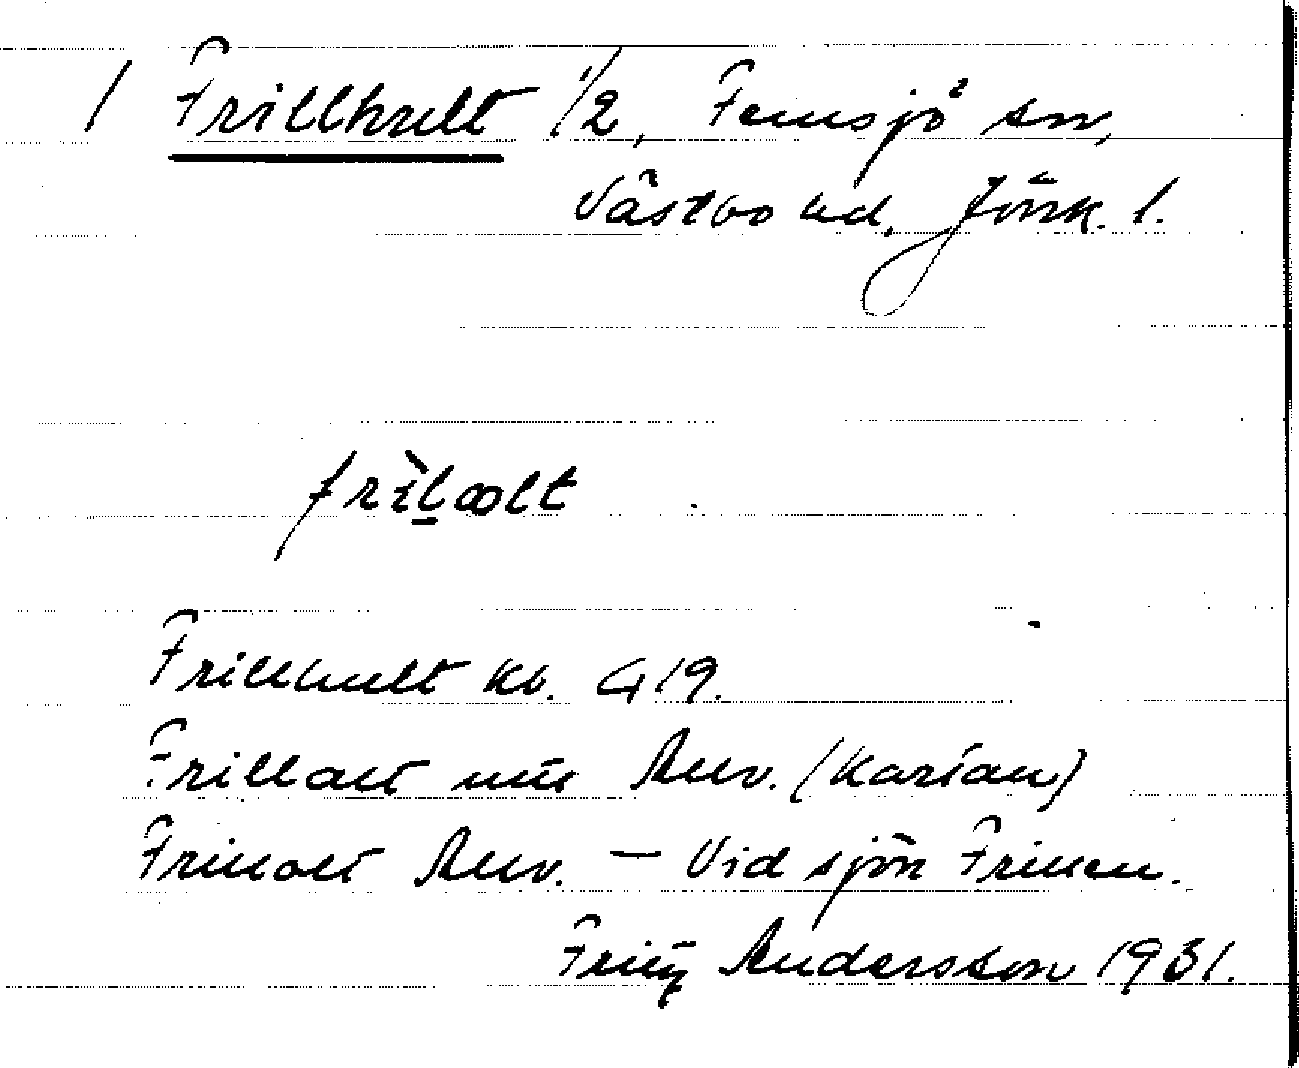 1 Frillhult 1/2, Femsjö sn,
Västbo hd, Jönk. l.
frìlọolt
Frillhult kb. G 19.
Frillolt Anv. (kartan)
Frillolt Anv. — Vid sjön Frillen.
Fritz Andersson 1931.